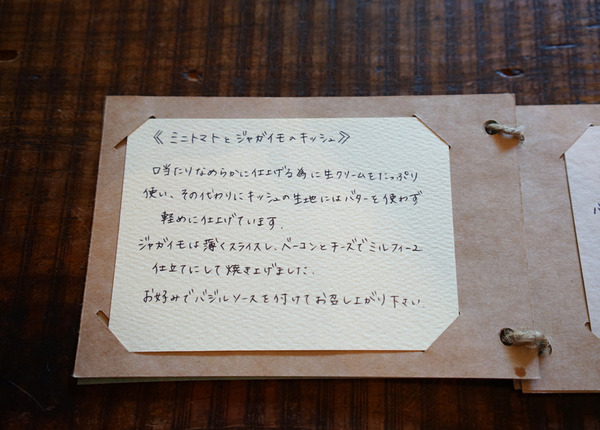 《ミニトマトとジャガイモのキッシュ》
口当たりなめらかに仕上げる為に生クリームをたっぷり
使い、その代わりにキッシュの生地にはバターを使わず
軽めに仕上げています.
ジャガイモは薄くスライスし、ベーコンとチーズでミルフィーユ
仕立てにして焼き上げました.
お好みでバジルソースを付けてお召し上がり下さい.